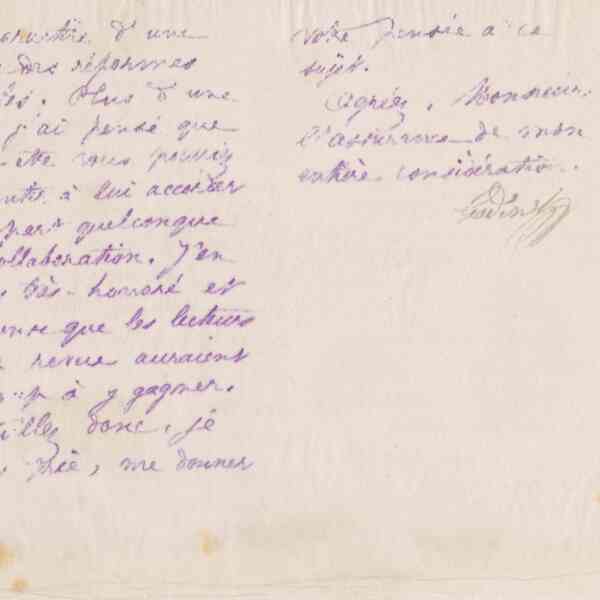 d'une
des réformes
Plus d'une
j'ai pensé que
vous pourriez
à lui accorder
quelconque
collaboration. J'en
très-honoré et
que les lecteurs
revue auraient
à y gagner.
donc, je
prie, me donner
votre pensée à ce
sujet.
Agréez, Monsieur,
l'assurance de mon
entière considération.
Godin